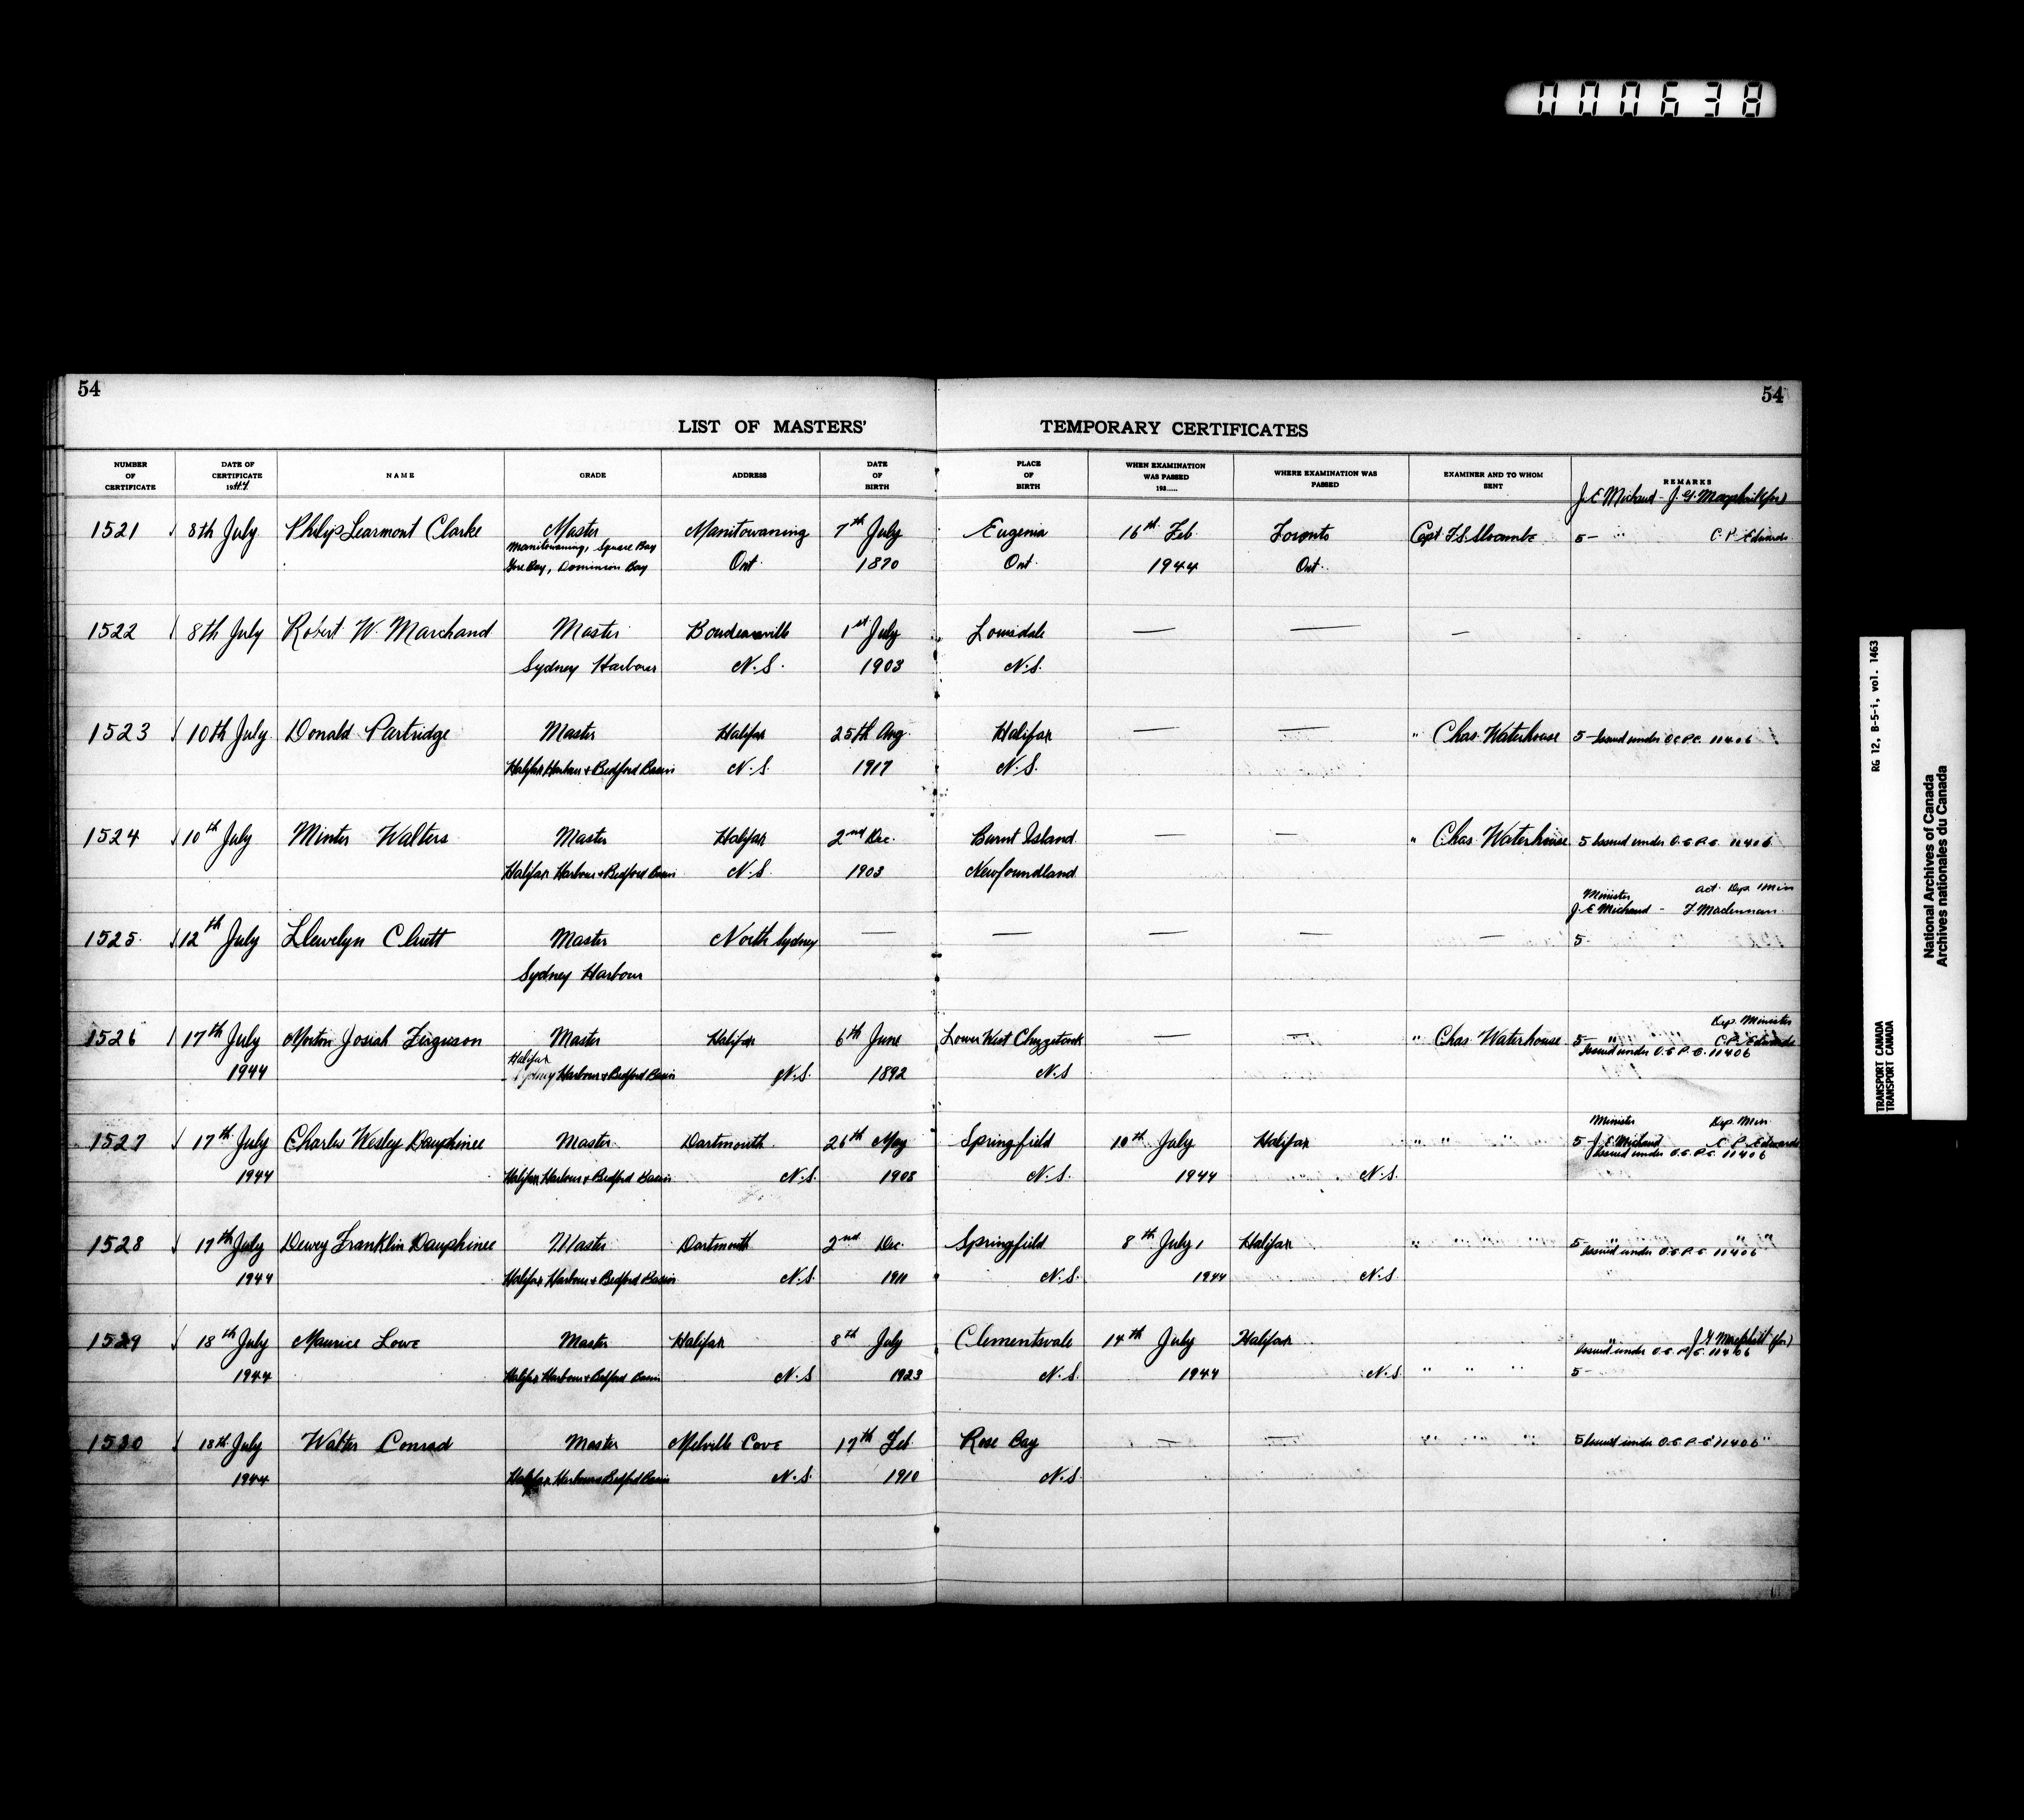 000638
54
54
LIST OF MASTERS' TEMPORARY CERTIFICATES
NUMBER OF CERTIFICATE
DATE OF CERTIFICATE 1944
NAME
GRADE
ADDRESS
DATE OF BIRTH
PLACE OF BIRTH
WHEN EXAMINATION WAS PASSED 193.....
WHERE EXAMINATION WAS PASSED
EXAMINER AND TO WHOM SENT
REMARKS
J. E. Michaud - J. G. Macphail (for)
1521 8th July Philip Learmont Clarke Master Manitowaning 7th July Eugenia 16th Feb Toronto Capt. 5- " C. P. Edwards
Manitowaning, Square Bay
Gore Bay, Dominion Bay Ont. 1870 Ont. 1944 Ont.
1522 8th July Robert W. Marchand Master 1st July Louisdale — — —
Sydney Harbour N.S. 1903 N.S.
1523 10th July Donald Partridge Master Halifax 25th Aug Halifax — — " Chas. Waterhouse 5- Issued under O.C.P.C. 11406
Halifax Harbour & Bedford Basin N.S. 1917 N.S.
1524 10th July Minter Walters Master Halifax 2nd Dec. Burnt Island — — " Chas. Waterhouse 5 Issued under O.C.P.C. 11406
Halifax Harbour & Bedford Basin N.S. 1903 Newfoundland
Minister act. Dep. Min
J. E. Michaud - F. Maclennan
1525 12th July Llewelyn Clutt Master North Sydney — — — — — 5-
Sydney Harbour
Dep. Minister
1526 17th July Morton Josiah Ferguson Master Halifax 6th June Lower West Chezzetcook — — " Chas. Waterhouse 5- " C. P. Edwards
Issued under O.C.P.C. 11406
Halifax
1944 Sydney Harbour & Bedford Basin N.S. 1892 N.S
Minister Dep. Min
1527 17th July Charles Wesley Dauphinee Master Dartmouth 26th May Springfield 10th July Halifax " " 5 J. E. Michaud C. P. Edwards
Issued under O.C.P.C. 11406
1944 Halifax Harbour & Bedford Basin N.S. 1908 N.S. 1944 N.S.
1528 17th July Dewey Franklin Dauphinee Master Dartmouth 2nd Dec. Springfield 8th July Halifax " " " " 5- " " "
Issued under O.C.P.C. 11406
1944 Halifax Harbour & Bedford Basin N.S. 1911 N.S. 1944 N.S.
1529 18th July Maurice Lowe Master Halifax 8th July Clementsvale 14th July Halifax " J. G. Macphail (for)
Issued under O.C.P.C. 11406
1944 Halifax Harbour & Bedford Basin N.S 1923 N.S. 1944 N.S. " " " 5-
1530 18th July Walter Conrad Master Melville Cove 17th Feb. Rose Bay — — " " " " 5 Issued under O.C.P.C. 11406 "
1944 Halifax Harbour & Bedford Basin N.S. 1910 N.S.
RG 12, B-5-i, vol. 1463
TRANSPORT CANADA
TRANSPORT CANADA
National Archives of Canada
Archives nationales du Canada